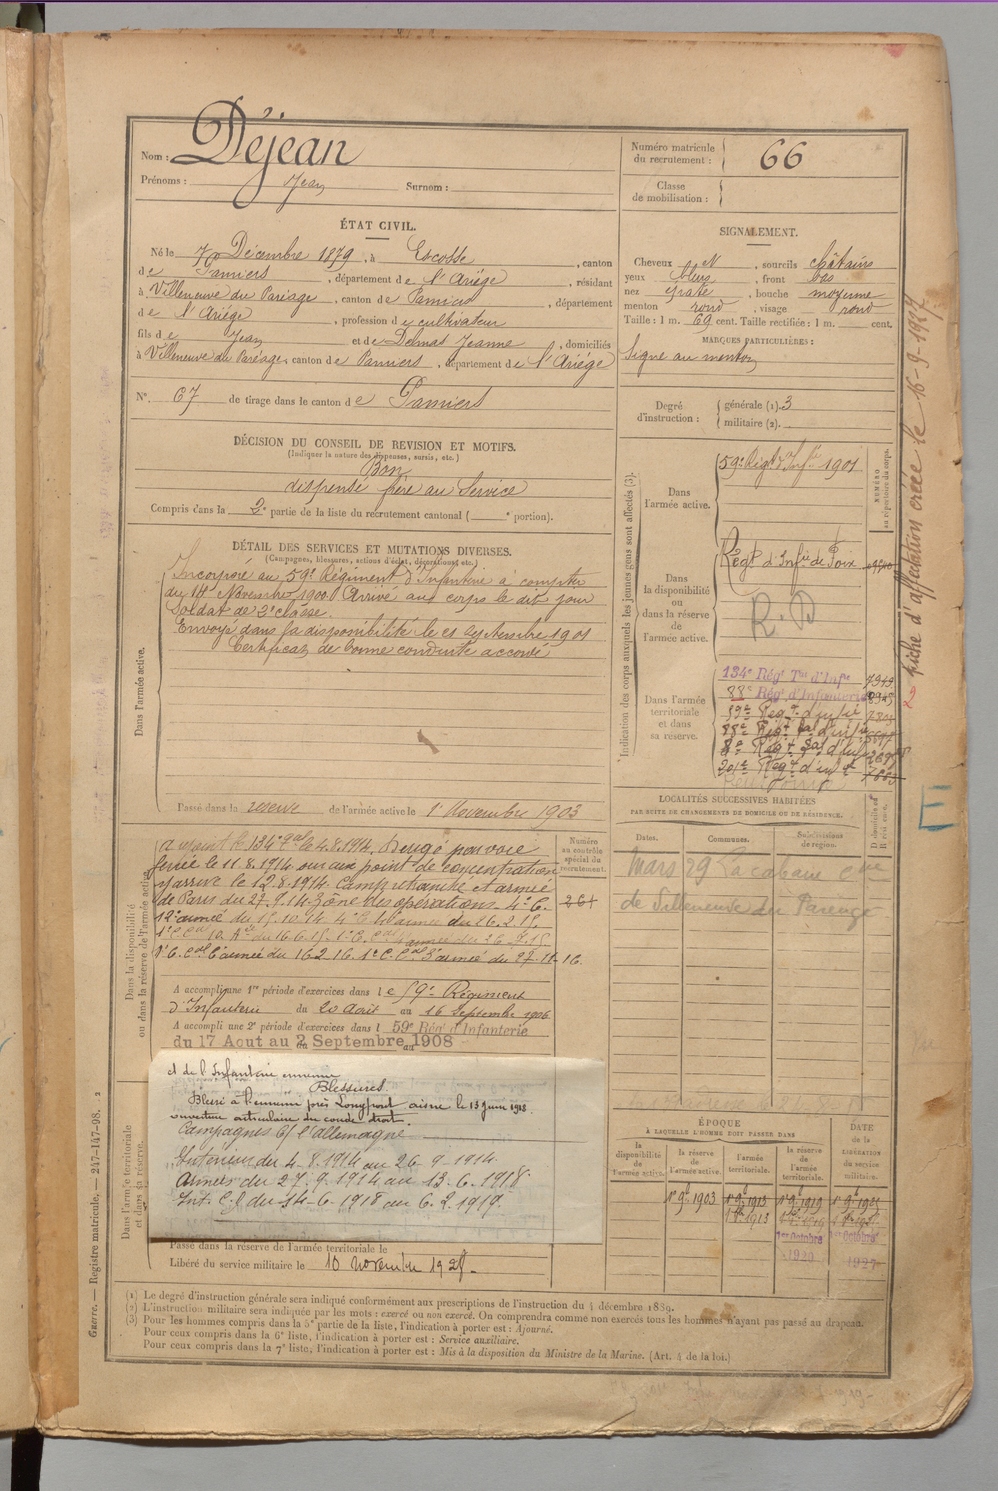 Nom : Déjean
Prénoms : Jean Surnom :
Numéro matricule du recrutement : 66
Classe de mobilisation :
ÉTAT CIVIL.
Né le 7 Décembre 1879, à Escosse, canton
de Pamiers, département de l'Ariége, résidant
à Villeneuve du Paréage, canton de Pamiers, département
de l'Ariége, profession de cultivateur
fils de Jean et de Delmas Jeanne, domiciliés
à Villeneuve du Paréage, canton de Pamiers, département de l'Ariége
N°. 67 de tirage dans le canton de Pamiers
SIGNALEMENT.
Cheveux et N, sourcils châtains
yeux bleus, front bas
nez épaté, bouche moyenne
menton rond, visage rond
Taille : 1 m. 69 cent. Taille rectifiée : 1 m. cent.
MARQUES PARTICULIÈRES :
Signe au menton
Degré d'instruction : générale (1). 3
militaire (2).
DÉCISION DU CONSEIL DE REVISION ET MOTIFS.
(Indiquer la nature des dispenses, sursis, etc.)
Bon
dispensé frère au Service
Compris dans la 2e partie de la liste du recrutement cantonal ( e portion).
DÉTAIL DES SERVICES ET MUTATIONS DIVERSES.
(Campagnes, blessures, actions d'éclat, décorations, etc.)
Dans l'armée active.
Incorporé au 59e Régiment d'Infanterie à compter
du 14 Novembre 1900. Arrivé au corps le dit jour
Soldat de 2e classe.
Envoyé dans la disponibilité le 21 septembre 1901
Certificat de bonne conduite accordé
Passé dans la réserve de l'armée active le 1 Novembre 1903
Indication des corps auxquels les jeunes gens sont affectés (3).
NUMÉRO au répertoire du corps.
Dans l'armée active.
59e Régt d'Infie 1901
Dans la disponibilité ou dans la réserve de l'armée active.
Régt d'Infie de Foix
R.D
Dans l'armée territoriale et dans sa réserve.
134e Régt Tal d'Infie
88e Régt d'Infanterie
59e Regt d'infie
88e Regt tal d'infie
201e Regt d'infie
2 fiche d'affectation créée le 16-9-1927
E
LOCALITÉS SUCCESSIVES HABITÉES
PAR SUITE DE CHANGEMENTS DE DOMICILE OU DE RÉSIDENCE.
Dates. Communes. Subdivisions de région.
Mars 29 La cabane cne
de Villeneuve du Pareage
Dans la disponibilité ou dans la réserve de l'armée active
Numéro au contrôle spécial du recrutement.
261
A rejoint le 134e tal le 4.8.1914, Réugé pour voie
ferrée le 11.8.1914 aux point de concentration
y arrive le 12.8.1914. Camp retranché et armée
de Paris du 27.9.14 Zône des opérations 4e C.
12e armée du 15.10.14 4e C. armée du 26.2.15
1er C. Cal 6e armée du 16.2.16. 1er C. Cal 3e armée du 27.11.16.
A accompli une 1re période d'exercices dans le 59e Régiment
d'Infanterie du 20 août au 16 Septembre 1906
A accompli une 2e période d'exercices dans l 59e Rég' d'Infanterie
du 17 Aout au 2 Septembre 1908
Dans l'armée territoriale et dans sa réserve.
et de l'Infanterie ennemie
Blessures
Blessé à l'ennemi près Longpont aisne le 13 Juin 1918
ouverture articulaire du coude droit.
Campagnes C/ l'allemagne
Intérieur du 4-8-1914 au 26-9-1914.
Armées du 27.9.1914 au 13.6.1918.
Int. C.G du 14-6-1918 au 6.2.1919.
Passé dans la réserve de l'armée territoriale le
Libéré du service militaire le 10 novembre 1928.
ÉPOQUE
À LAQUELLE L'HOMME DOIT PASSER DANS
DATE de la LIBÉRATION du service militaire.
la disponibilité de l'armée active.
la réserve de l'armée active.
l'armée territoriale.
la réserve de l'armée territoriale.
1er 9bre 1903 1er 9bre 1913 1er 9bre 1919 1er 9bre 1925
1er 9bre 1913
1er Octobre 1920
1er Octobre 1927
(1) Le degré d'instruction générale sera indiqué conformément aux prescriptions de l'instruction du 4 décembre 1889.
(2) L'instruction militaire sera indiquée par les mots : exercé ou non exercé. On comprendra comme non exercés tous les hommes n'ayant pas passé au drapeau.
(3) Pour les hommes compris dans la 5e partie de la liste, l'indication à porter est : Ajourné.
Pour ceux compris dans la 6e liste, l'indication à porter est : Service auxiliaire.
Pour ceux compris dans la 7e liste, l'indication à porter est : Mis à la disposition du Ministre de la Marine. (Art. 4 de la loi.)
Guerre. — Registre matricule. — 247-147-98. 2